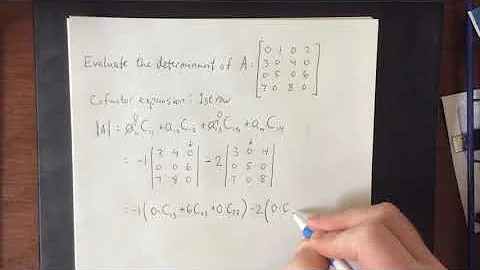 Evaluate the determinant of A = [0 1 0 2
3 0 4 0
0 5 0 6
7 0 8 0]
Cofactor expansion: 1st row
|A| = a₁₁⁰C₁₁ + a₁₂C₁₂ + a₁₃⁰C₁₃ + a₁₄C₁₄
= -1 |3 4 0↓
0 0 6
7 8 0| - 2 |3 0↓ 4
0 5 0
7 0 8|
= -1(0·C₁₃ + 6C₂₃ + 0·C₃₃) - 2(0·C